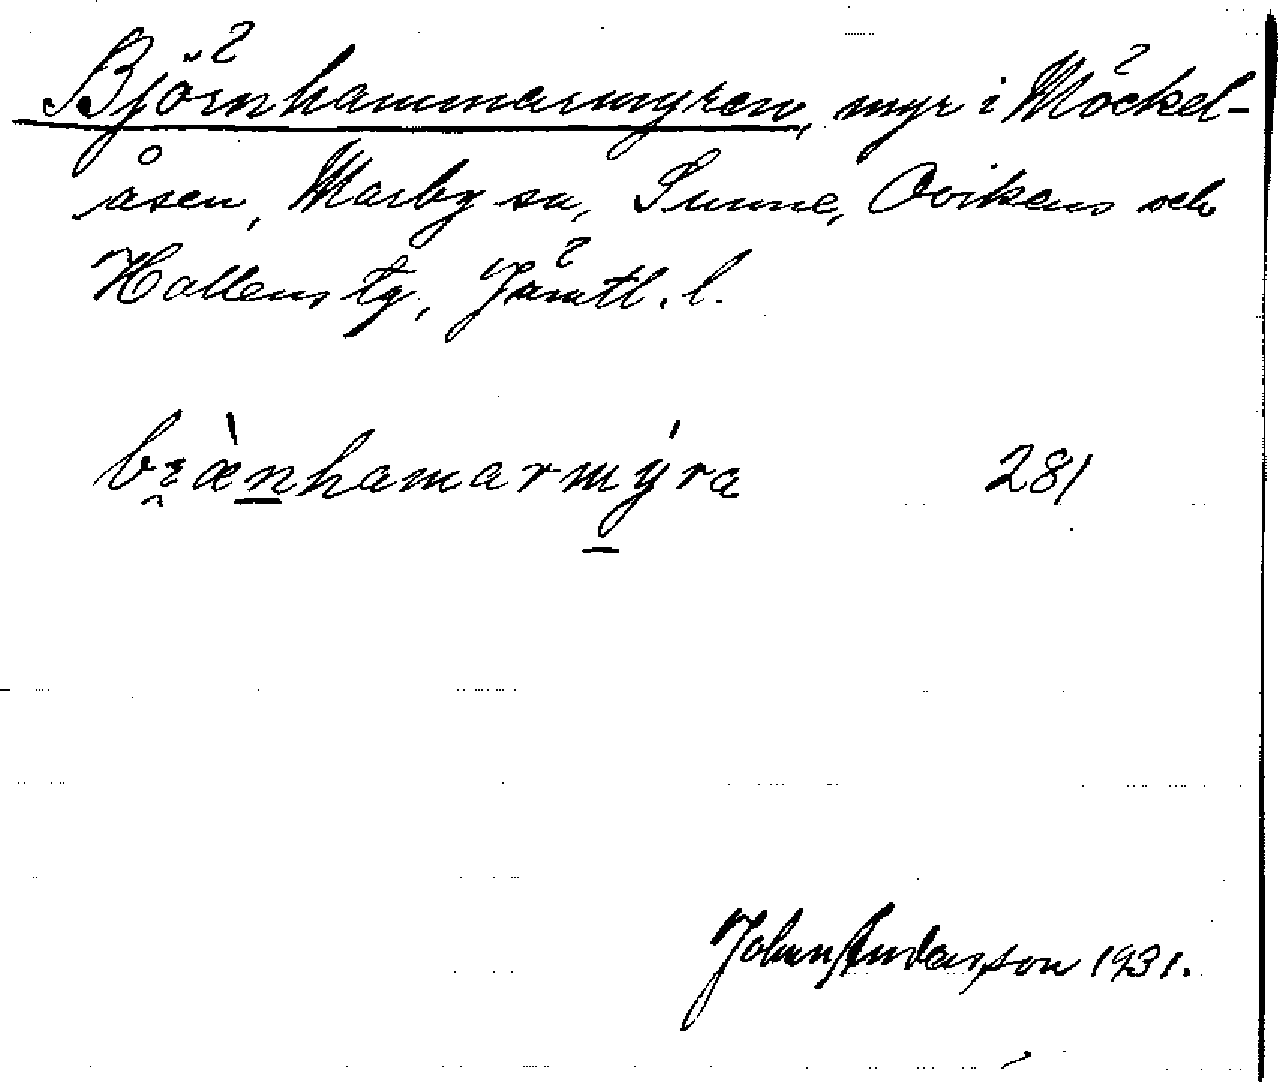 Björnhammarmyren, myr i Möckel-
åsen, Marby sn, Sunne, Ovikens och
Hallens tg, Jämtl. l.
br̯æ̀n̲hamarmýra 281
John Anderson 1931.